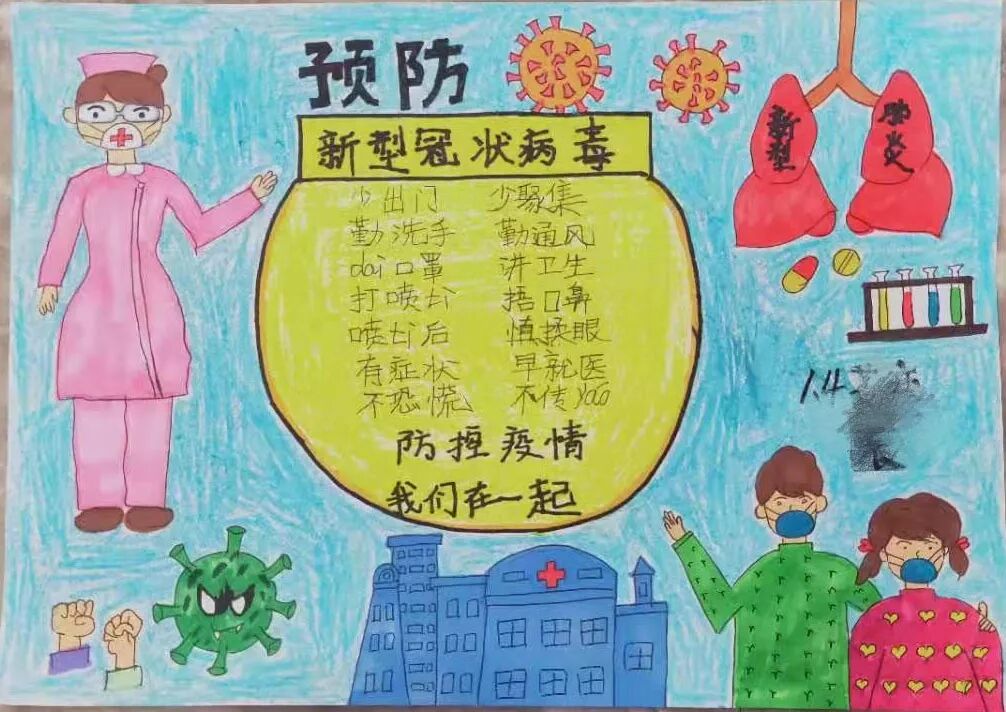 预防
新型冠状病毒
少出门 少聚集
勤洗手 勤通风
dai口罩 讲卫生
打喷ti 捂口鼻
喷ti后 慎揉眼
有症状 早就医
不恐慌 不传yao
防控疫情
我们在一起
新型 肺炎
1.4